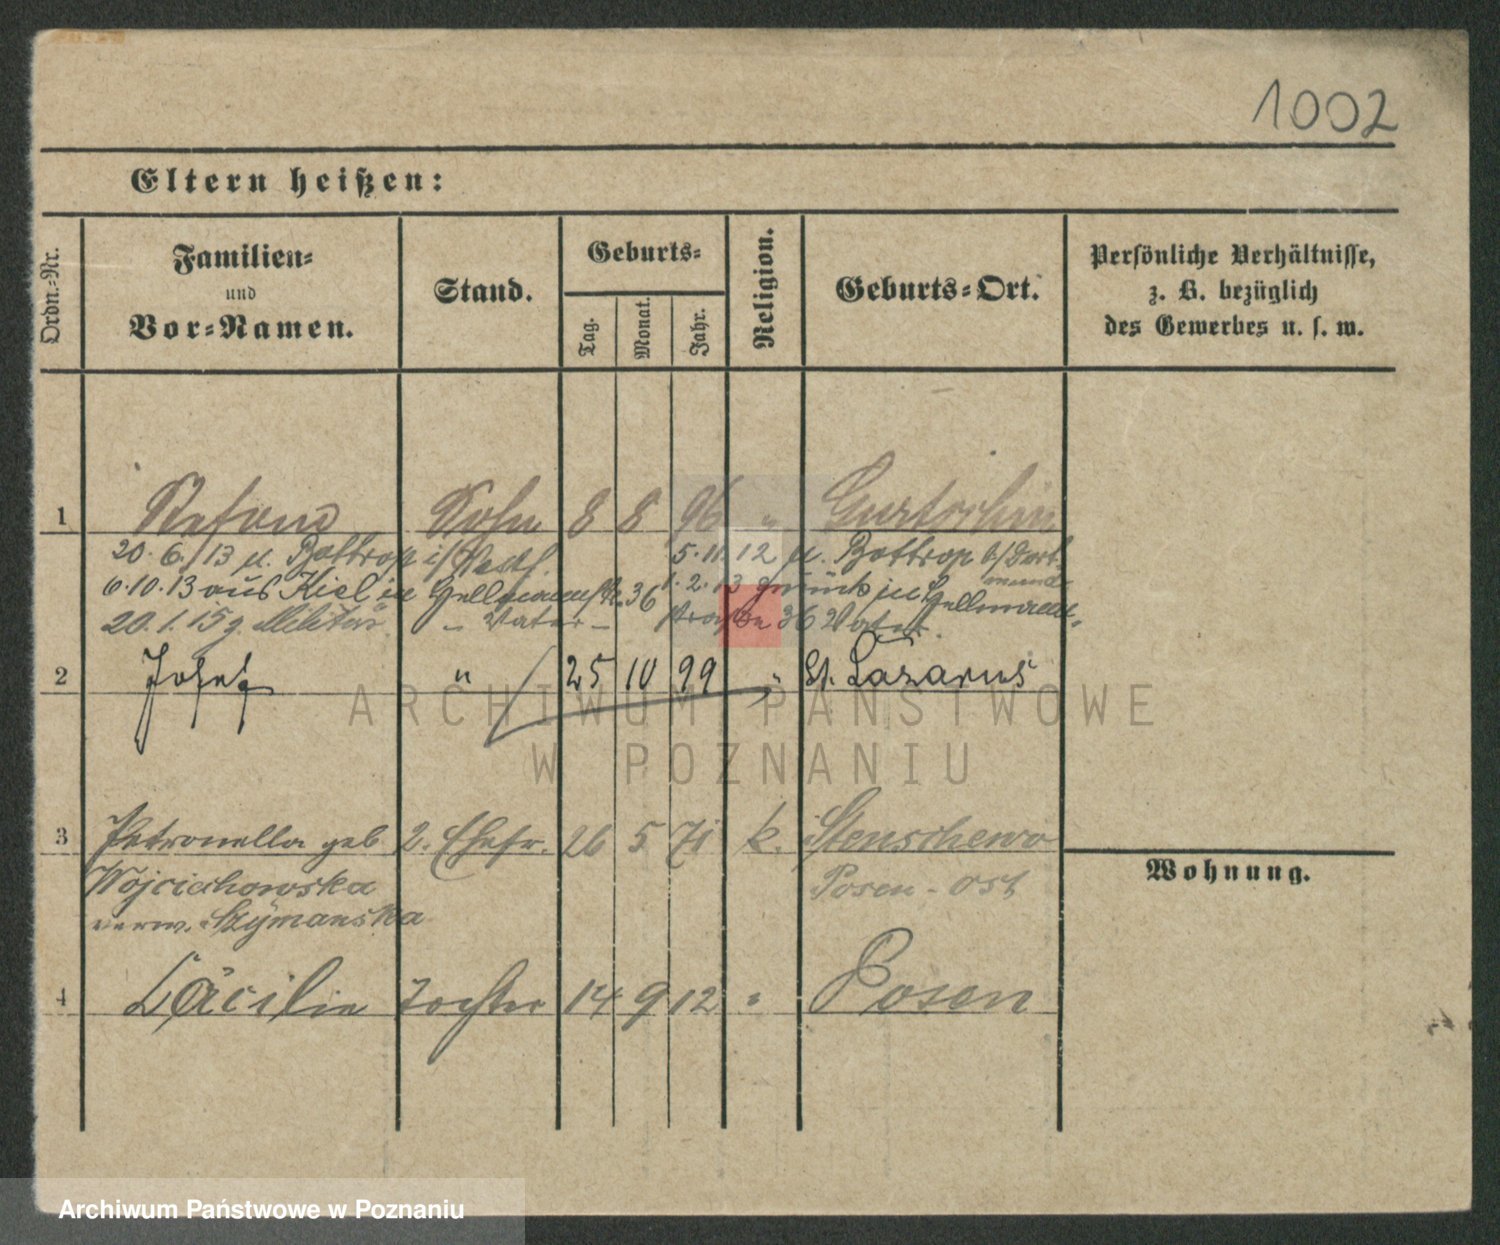 1002
Eltern heißen:
Ordn.-Nr.
Familien-
und
Vor-Namen.
Stand.
Geburts-
Tag.
Monat.
Jahr.
Religion.
Geburts-Ort.
Persönliche Verhältnisse,
z. B. bezüglich
des Gewerbes u. s. w.
1 Stefan Sohn 8 8 96 " Gurtschin
20. 6./13 n. Bottrop i/Westf.
5. 11. 12 n. Bottrop b/Dort-
mund
6. 10. 13 aus Kiel in Hellmannstr. 36
1. 2. 13 zurück in Hellmann-
straße 36 Vater.
20. 1. 15 z. Militär
- Vater -
2 Josef " 25 10 99 " St. Lazarus
3 Petronella geb 2. Ehefr. 26 5 71 k. Stenschewo
Wojciechowska
Posen-Ost
verw. Szymanska
4 Cäcilie Tochter 14 9 12 " Posen
Wohnung.
ARCHIWUM PAŃSTWOWE
W POZNANIU
Archiwum Państwowe w Poznaniu